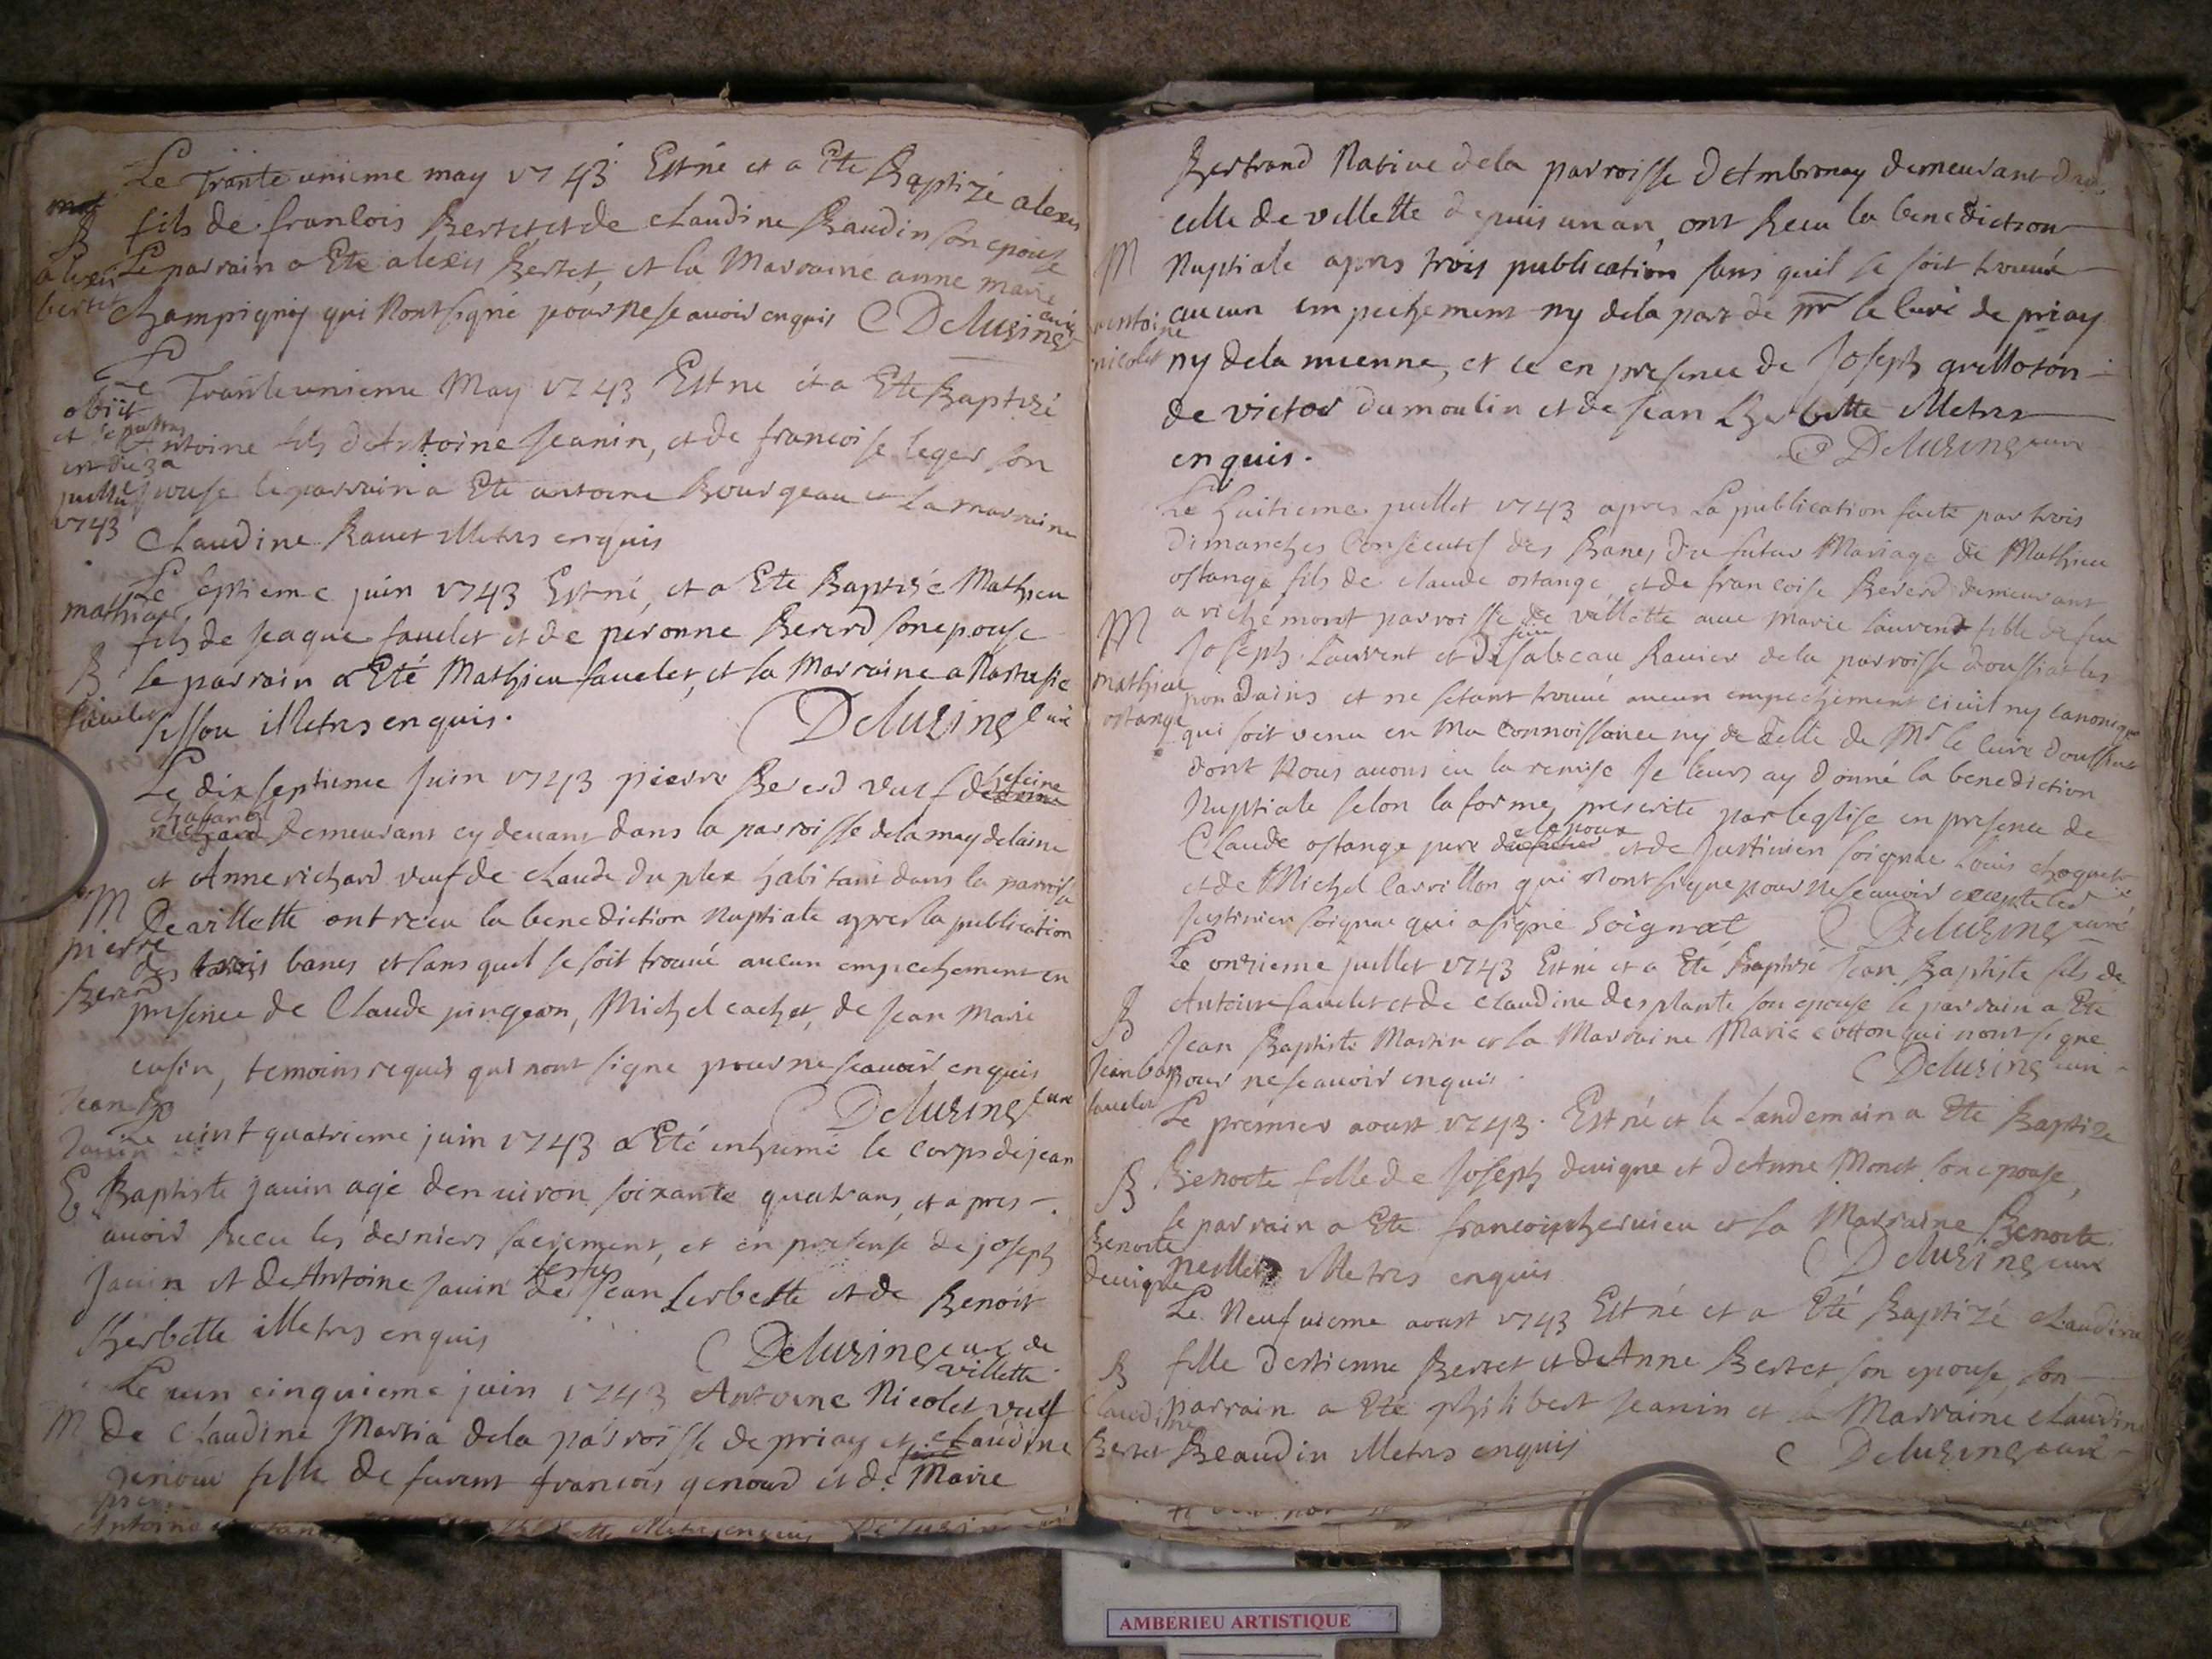 Le Trante unieme may 1743 Est né et a Ete Baptizé alexis
fils de francois Bertet et de claudine Baudin son epouse
B
alexis
bertet
Le parrain a Ete alexis Bertet, et la Marraine anne marie
champignij qui nont signé pour ne scavoir enquis Deluzines curé
Le Trante unieme May 1743 Est ne et a Ete Baptizé
obiit
et sepultus
julliet
1743
Antoine fils d'Antoine Jeanin, et de francoise leger son
epouse le parrain a Ete antoine Bourgeau et La marraine
Claudine Ravet illetrés enquis
Le septieme juin 1743 Est né, et a Ete Baptisé Mathieu
mathieu
B
fauelet
fils de jeaque fauelet et de peronne Bererd son epouse
le parrain a Eté Mathieu fauelet, et la Marraine anastasie
illetrés enquis. Deluzines curé
Le dix septieme Juin 1743 pierre Bererd veuf de
demeurant cy devant dans la parroisse de la may delaine
et Anne richard veuf de claude du plex habitant dans la parroisse
M
pierre
Bererd
De villette ont receu la benediction Nuptiale apres la publication
des trois bancs et sans quil se soit trouué aucun empechement en
presence de Claude pingeon, Michel cachet, de Jean Marie
cusin, temoins requis qui nont signe pour ne scauoir enquis
Deluzines curé
Jean B
Jauin
Le vint quatrieme juin 1743 a Eté inhumé le corps de jean
E
Baptiste jauin agé denuiron soixante quatr ans, et apres
auoir Receu les derniers sacrement, et en presense de joseph
Jauin et de Antoine jauin de Jean Lerbette et de Benoit
Lherbette illetrés enquis Deluzines curé de
villette
Le vin cinquieme juin 1743 Antoine Nicolet veuf
M
de Claudine Martia de la parroisse de priay et claudine
genoud fille de furent francois genoud et de Marie
Bertrand Native de la parroisse d'Ambronay demeurant dans
celle de villette depuis un an, ont Receu la benediction
M
antoine
nicolet
Nuptiale apres trois publication sans quil se soit trouué
aucun empechement ny dela part de mr le curé de priay
ny dela mienne, et ce en presence de Joseph grilloton
de victor dumoulin et de Jean Lherbette illetrés
enquis. Deluzines curé
Le huitieme juillet 1743 apres La publication faite par trois
dimanches Consecutif des Bancs du futur Mariage de Mathieu
ostange fils de claude ostange, et de francoise Bererd demeurant
a richemont parroisse de villette avec Marie Laurent fille de feu
M
mathieu
ostange
Joseph Laurent et disabeau Ravier dela parroisse doussiat les
pondains et ne setant trouué aucun empechement ciuil ny canonique
qui soit venu en Ma connoissance ny de celle de Mr le curé doussiat
dont Nous auons eu la remise Je leurs ay donné la benediction
Nuptiale selon la forme, prescrite par leglise en presence de
Claude ostange pere de lepoux et de Justinien soignat Louis choquet
et de Michel Carrillon qui n'ont signe pour ne scauoir excepte led
Justinien soignat qui a signé Soignat Deluzines curé
Le onzieme juillet 1743 Est né et a Eté Baptizé Jean Baptiste fils de
B
Jean bap
fauelet
Antoine fauelet et de claudine desplante son epouse le parrain a Ete
Jean Baptiste Martin et la Marraine Marie cotton qui nont signe
pour ne scauoir enquis. Deluzines curé
Le premier aoust 1743. Est né et le Landemain a Ete Baptize
B
Benoite
deuigne
Benoite fille de Joseph deuigne et d'Anne Monet son epouse,
le parrain a Ete francois cheruieu et la Marraine Benoite
illetrés enquis Deluzines curé
Le Neufuieme aoust 1743 Est né et a Eté Baptizé claudine
B
Claudine
Bertet
fille destienne Bertet et d'Anne Bertet son epouse, son
parrain a Ete philibert Jeanin et la Marraine claudine
Beaudin illetrés enquis Deluzines curé
AMBERIEU ARTISTIQUE